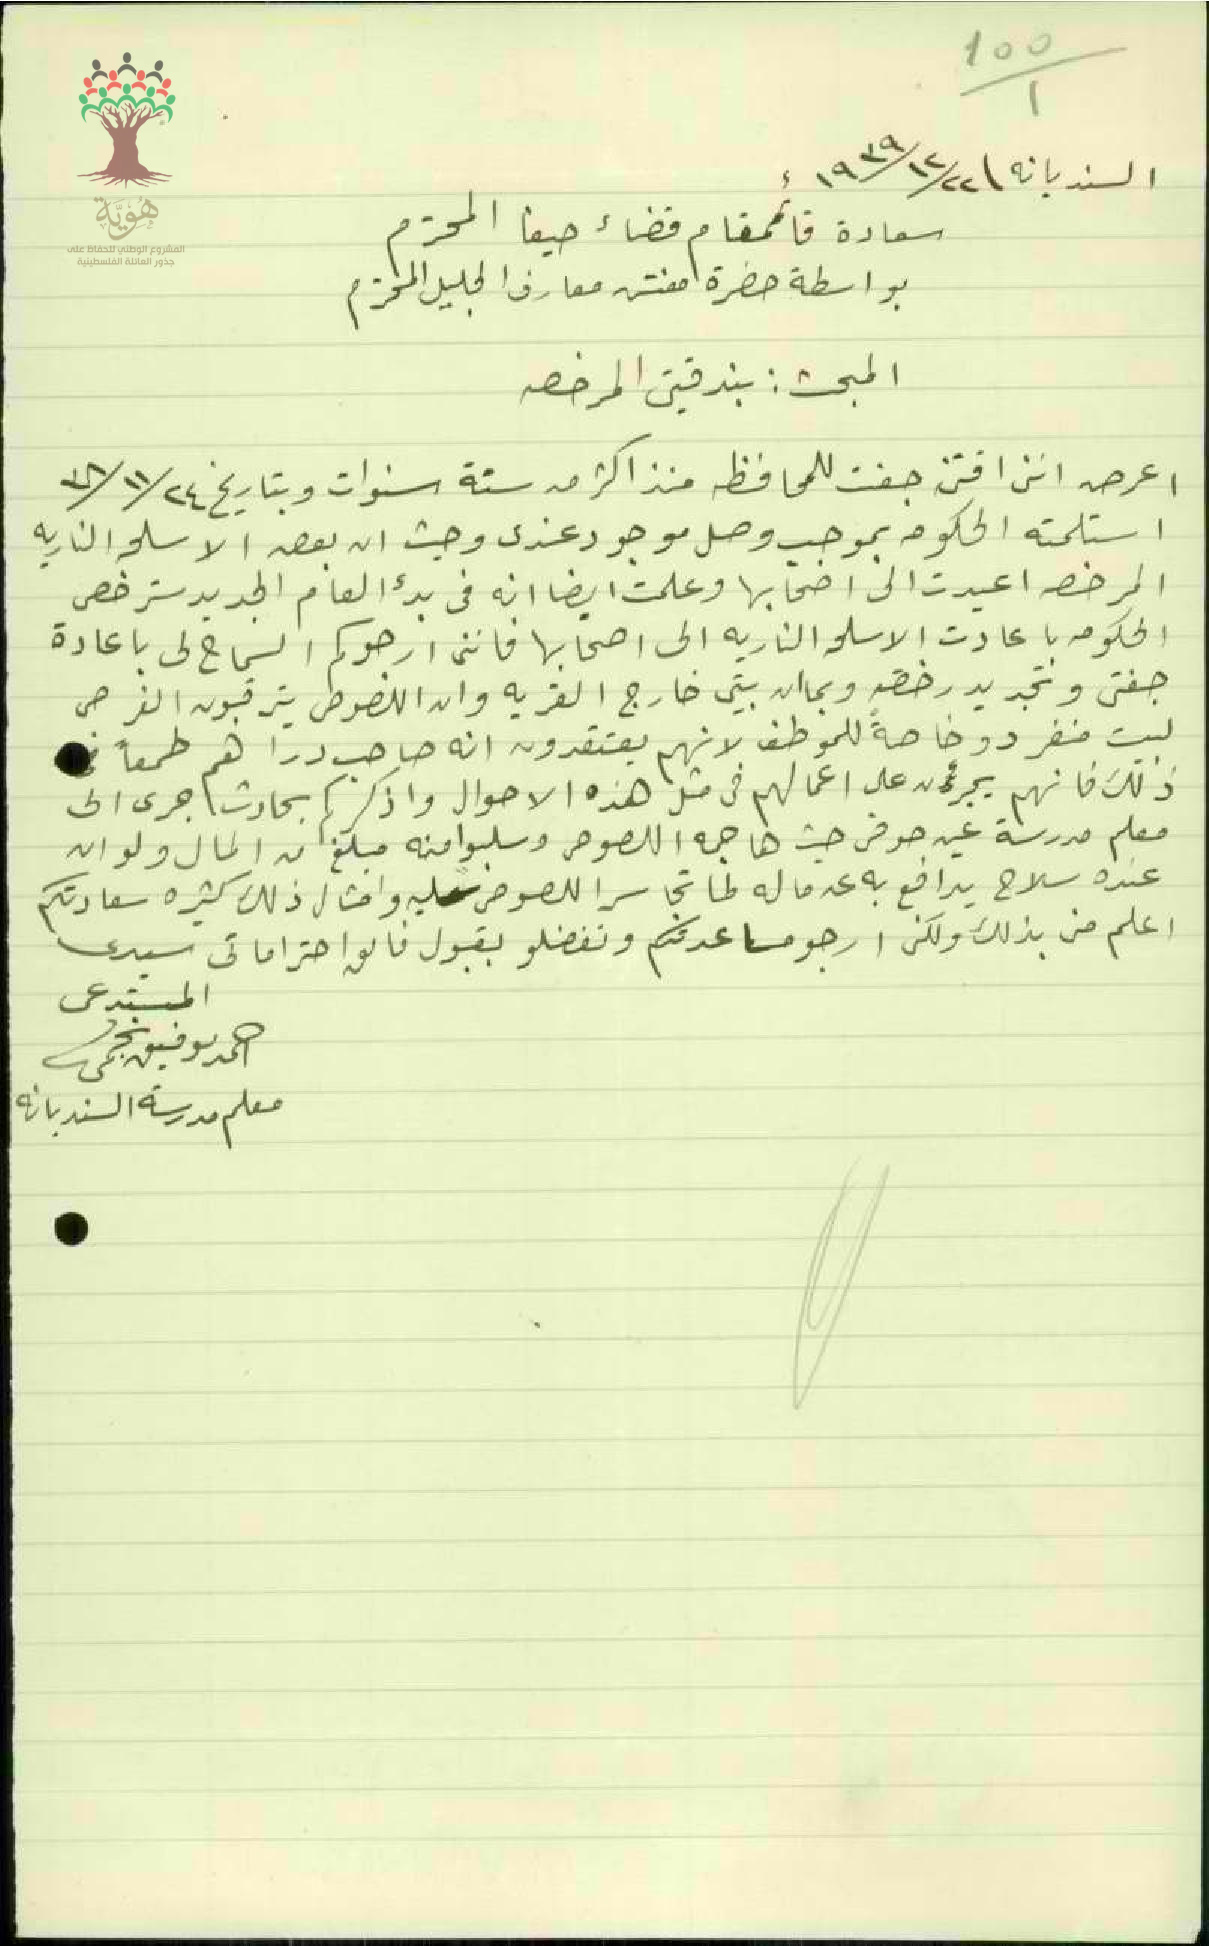 100
1
هُوِيَّة
المشروع الوطني للحفاظ على
جذور العائلة الفلسطينية
السنديانه ٢٢/١٢/١٩٣٩
سعادة قائمقام قضاء حيفا المحترم
بواسطة حضرة مفتش معارف الجليل المحترم
المبحث : بندقيتي المرخصه
اعرض انني اقتني جفت للمحافظه منذ اكثر من ستة سنوات وبتاريخ ٢٤/١١/٣٨
استلمته الحكومه بموجب وصل موجود عندي وحيث ان بعض الاسلحه الناريه
المرخصه اعيدت الى اصحابها وعلمت ايضا انه في بدأ العام الجديد سترخص
الحكومه باعادت الاسلحه الناريه الى اصحابها فانني ارجوكم السماح لي باعادة
جفتي وتجديد رخصته وبما ان بيتي خارج القريه وان اللصوص يترقبون الفرص
لبيت منفرد وخاصةً للموظف لانهم يعتقدون انه صاحب دراهم طمعاً في
ذلك فانهم يجرئون على اعمالهم في مثل هذه الاحوال واذكركم بحادث جرى الى
معلم مدرسة عين حوض حيث هاجمه اللصوص وسلبوا منه مبلغ من المال ولو ان
عنده سلاح يدافع به عن ماله لما تجاسر اللصوص عليه وامثال ذلك كثيره سعادتكم
اعلم مني بذلك ولكني ارجو مساعدتكم وتفضلو بقبول فائق احتراماتي سيدي
المستدعي
احمد توفيق نجمي
معلم مدرسة السنديانه